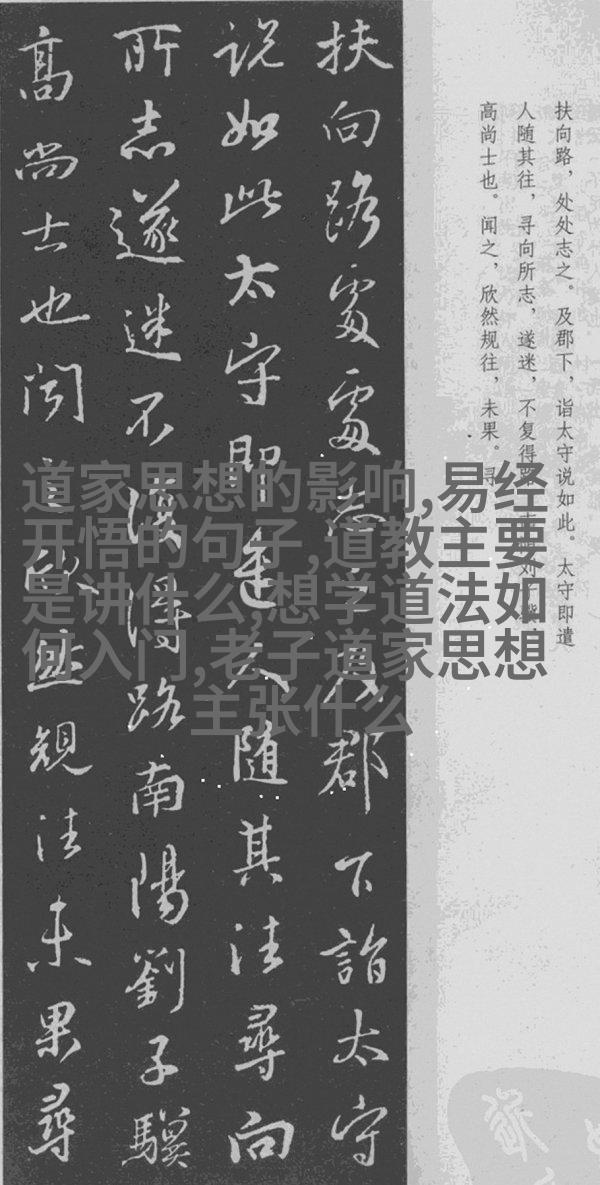 扶向路，处处志之。及郡下，诣太守说如此。太守即遣
人随其往，寻向所志，遂迷，不复得
高尚士也。闻之，欣然规往，未果。寻
扶向路處處志之及郡下詣太守
说如此太守即遣人随其往尋向
所志遂迷不復得路南陽劉子驥
高尚士也聞之欣然規往未果尋
道家思想的影响,易经
开悟的句子,道教主要
是讲什么,想学道法如
何入门,老子道家思想
主张什么